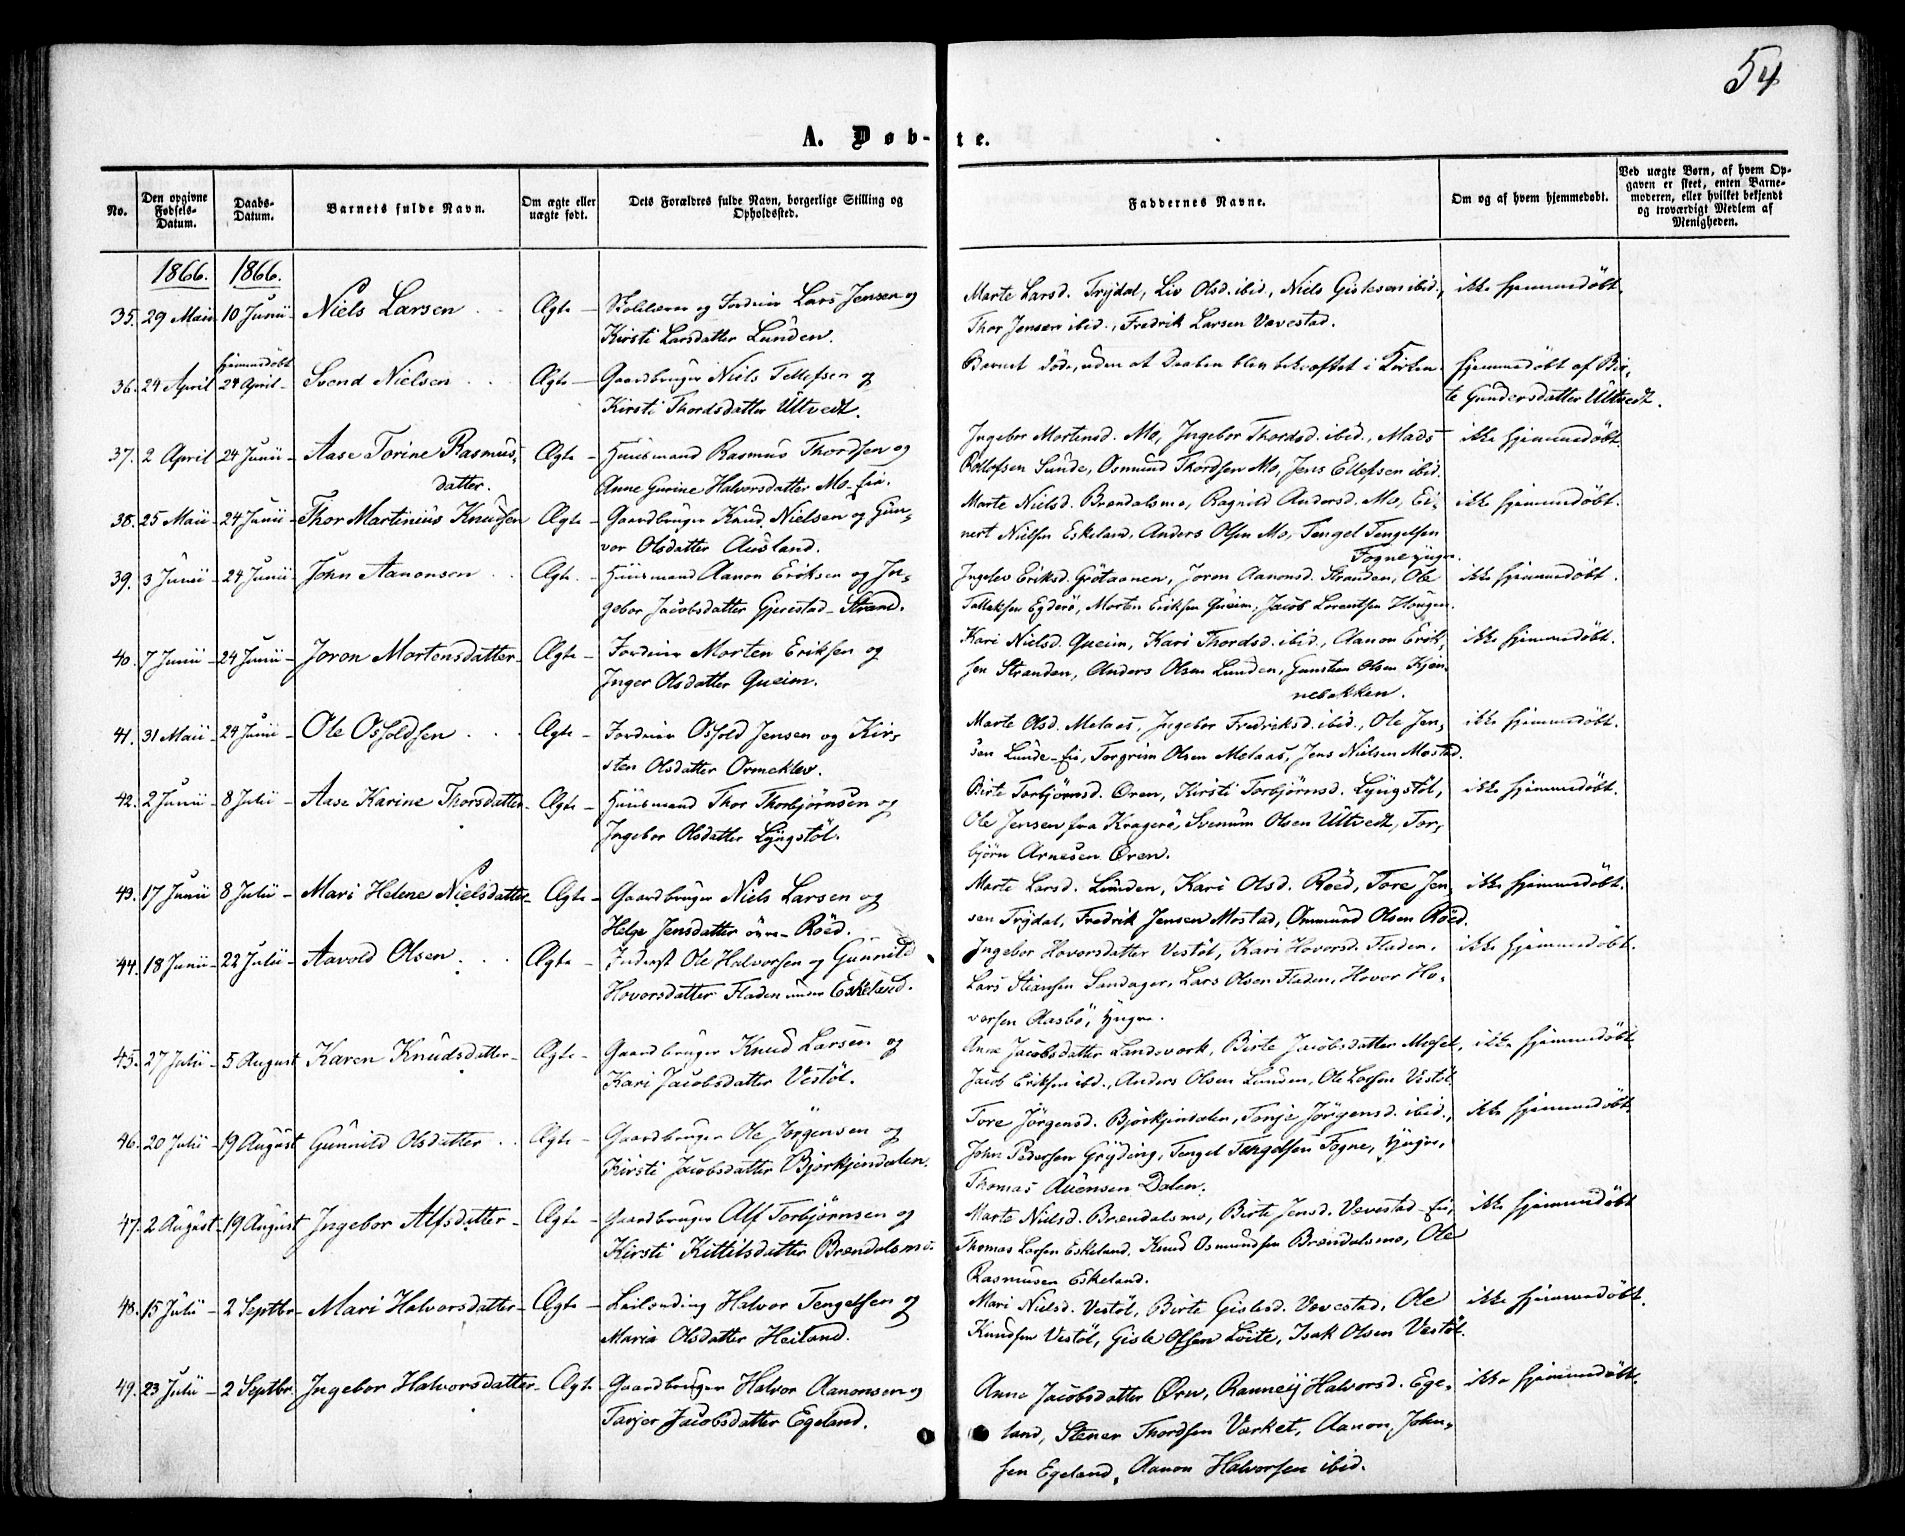 54
A. Døb- te.
No. Den opgivne Fødsels-Datum. Daabs-Datum. Barnets fulde Navn. Om ægte eller uægte født. Dets Forældres fulde Navn, borgerlige Stilling og Opholdssted. Faddernes Navne. Om og af hvem hjemmedøbt. Ved uægte Børn, af hvem Opgaven er skeet, enten Barnemoderen, eller hvilket bekjendt og troværdigt Medlem af Menigheden.
1866. 1866.
35. 29 Maii 10 Junii Niels Larsen Ægte Skolelærer og Lars Jensen og Marte Larsd. Trydal, Liv Olsd. ibid., Niels Gislesen ibid., ikke hjemmedöbt.
Kirsti Larsdatter Lunden. Thor Jensen ibid., Fredrik Larsen Vævestad.
hjemmedöbt
36. 24 April 24 April Svend Nielsen Ægte Gaardbruger Niels Tellefsen og Barnet döde, uden at Daaben blev bekræftet i Kirken. hjemmedöbt af Bir-
Kirsti Thordsdatter Ultvedt. te Gundersdatter Ultvedt.
37. 2 April 24 Junii Aase Torine Rasmus- Ægte Huusmand Rasmus Thordsen og Ingebor Mortensd. Mo, Ingebor Thordsd. ibid., Mads ikke hjemmedöbt
datter. Anne Gurine Halvorsdatter Mo-Eie. Rollofsen Lunde, Osmund Thordsen Mo, Jens Ellefsen ibid.
38. 25 Maii 24 Junii Thor Martinius Knudsen Ægte Gaardbruger Knud Nielsen og Gun- Marte Nielsd. Brændalsmo, Ragnild Andersd. Mo, Ei- ikke hjemmedöbt.
vor Olsdatter Ausland. nert Nielsen Eskeland, Anders Olsen Mo, Tengel Tengelsen
Fogne yngre.
39. 3 Junii 24 Junii John Aanonsen Ægte Huusmand Aanon Eriksen og In- Ingelev Eriksd. Grötaanen, Joron Aanonsd. Stranden, Ole ikke hjemmedöbt.
gebor Jacobsdatter Gjerestad-Strand. Tallaksen Egderö, Morten Eriksen Queim, Jacob Lorentsen Haugen.
40. 7 Junii 24 Junii Joron Mortensdatter Ægte Morten Eriksen og Kari Nielsd. Queim, Kari Thordsd. ibid., Aanon Erik- ikke hjemmedöbt.
Inger Olsdatter Queim. sen Stranden, Anders Olsen Lunden, Gunsten Olsen Kjen-
nebakken.
41. 31 Maii 24 Junii Ole Osfoldsen Ægte Osfold Jensen og Kir- Marte Olsd. Melaas, Ingebor Fredriksd. ibid., Ole Jen- ikke hjemmedöbt.
sten Olsdatter Ormeklev. sen Lunde-Eie, Torgrim Olsen Melaas, Jens Nielsen Mostad.
42. 2 Junii 8 Julii Aase Karine Thorsdatter Ægte Huusmand Thor Thorbjörnsen og Birte Torbjörnsd. Ören, Kirsti Torbjörnsd. Lyngstöl, ikke hjemmedöbt.
Ingebor Olsdatter Lyngstöl. Ole Jensen fra Kragerö, Svenum Olsen Ultvedt, Tor-
björn Arnesen Ören.
43. 17 Junii 8 Julii Mari Helene Nielsdatter Ægte Gaardbruger Niels Larsen og Marte Larsd. Lunden, Kari Olsd. Röed, Tore Jen- ikke hjemmedöbt.
Helge Jensdatter övre-Röed. sen Trydal, Fredrik Jensen Mostad, Ommund Olsen Röed.
44. 18 Junii 22 Julii Aavold Olsen Ægte Inderst Ole Halvorsen og Gunnild Ingebor Hovorsdatter Vestöl, Kari Hovorsd. Fladen, ikke hjemmedöbt.
Hovorsdatter Fladen under Eskeland. Lars Stiansen Sandager, Lars Olsen Fladen, Hovor Ho-
vorsen Aasbö, yngre.
45. 27 Julii 5 August Karen Knudsdatter Ægte Gaardbruger Knud Larsen og Anne Jacobsdatter Landsverk, Birte Jacobsdatter Mösel, ikke hjemmedöbt
Kari Jacobsdatter Vestöl. Jacob Eriksen ibd., Anders Olsen Lunden, Ole Larsen Vestöl
46. 20 Julii 19 August Gunnild Olsdatter Ægte Gaardbruger Ole Jörgensen og Tore Jörgensd. Björkjendalen, Tonje Jörgensd. ibid., ikke hjemmedöbt.
Kirsti Jacobsdatter Björkjendalen. John Pedersen Gryting, Tengel Tengelsen Fogne, yngre,
Thomas Auensen Dalen.
47. 2 August 19 August Ingebor Alfsdatter Ægte Gaardbruger Alf Torbjörnsen og Marte Nielsd. Brændalsmo, Birte Jensd. Vævestad-Eie, ikke hjemmedöbt
Kirsti Kittilsdatter Brændalsmo. Thomas Larsen Eskeland, Knud Osmundsen Brændalsmo, Ole
Rasmussen Eskeland.
48. 15 Julii 2 Septbr Mari Halvorsdatter Ægte Leilænding Halvor Tengelsen og Mari Nielsd. Vestöl, Birte Gislesd. Vævestad, Ole ikke hjemmedöbt.
Maria Olsdatter Heiland. Knudsen Vestöl, Gisle Olsen Löite, Isak Olsen Vestöl.
49. 23 Julii 2 Septbr. Ingebor Halvorsdatter Ægte Gaardbruger Halvor Aanonsen og Anne Jacobsdatter Ören, Ranney Halvorsd. Ege- ikke hjemmedöbt.
Tarjer Jacobsdatter Egeland. land, Stener Thordsen Værket, Aanon John-
sen Egeland, Aanon Halvorsen ibid.